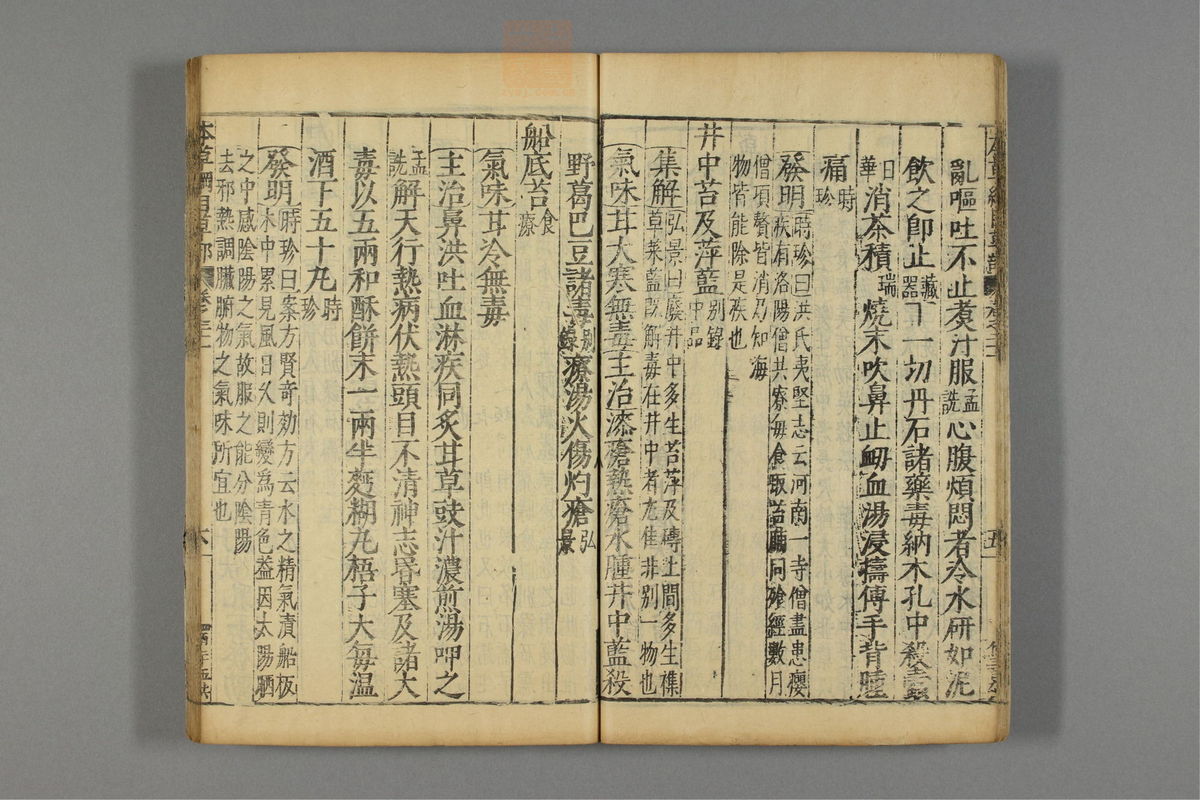 亂嘔吐不止煑汁服孟詵心腹煩悶者冷水研如泥
飲之即止藏器下一切丹石諸藥毒納木孔中殺蟲
日華消茶積瑞燒末吹鼻止衂血湯浸擣傅手背腫
痛時珍
發明時珍曰洪氏夷堅志云河南一寺僧盡患癭
疾有洛陽僧共寮每食取苔脯同飱經數月
僧項贅皆消乃知海
物皆能除是疾也
井中苔及萍藍別錄中品
集解弘景曰廢井中多生苔萍及磚土間多生雜
草菜藍既解毒在井中者尤佳非別一物也
氣味甘大寒無毒主治漆瘡熱瘡水腫井中藍殺
野葛巴豆諸毒別錄療湯火傷灼瘡弘景
船底苔食療
氣味甘冷無毒
主治鼻洪吐血淋疾同炙甘草豉汁濃煎湯呷之
孟詵解天行熱病伏熱頭目不清神志昏塞及諸大
毒以五兩和酥餅末一兩半麪糊丸梧子大每温
酒下五十丸時珍
發明時珍曰案方賢奇効方云水之精氣漬船板
木中累見風日久則變爲青色葢因太陽晒
之中感陰陽之氣故服之能分陰陽
去邪熱調臟腑物之氣味所宜也